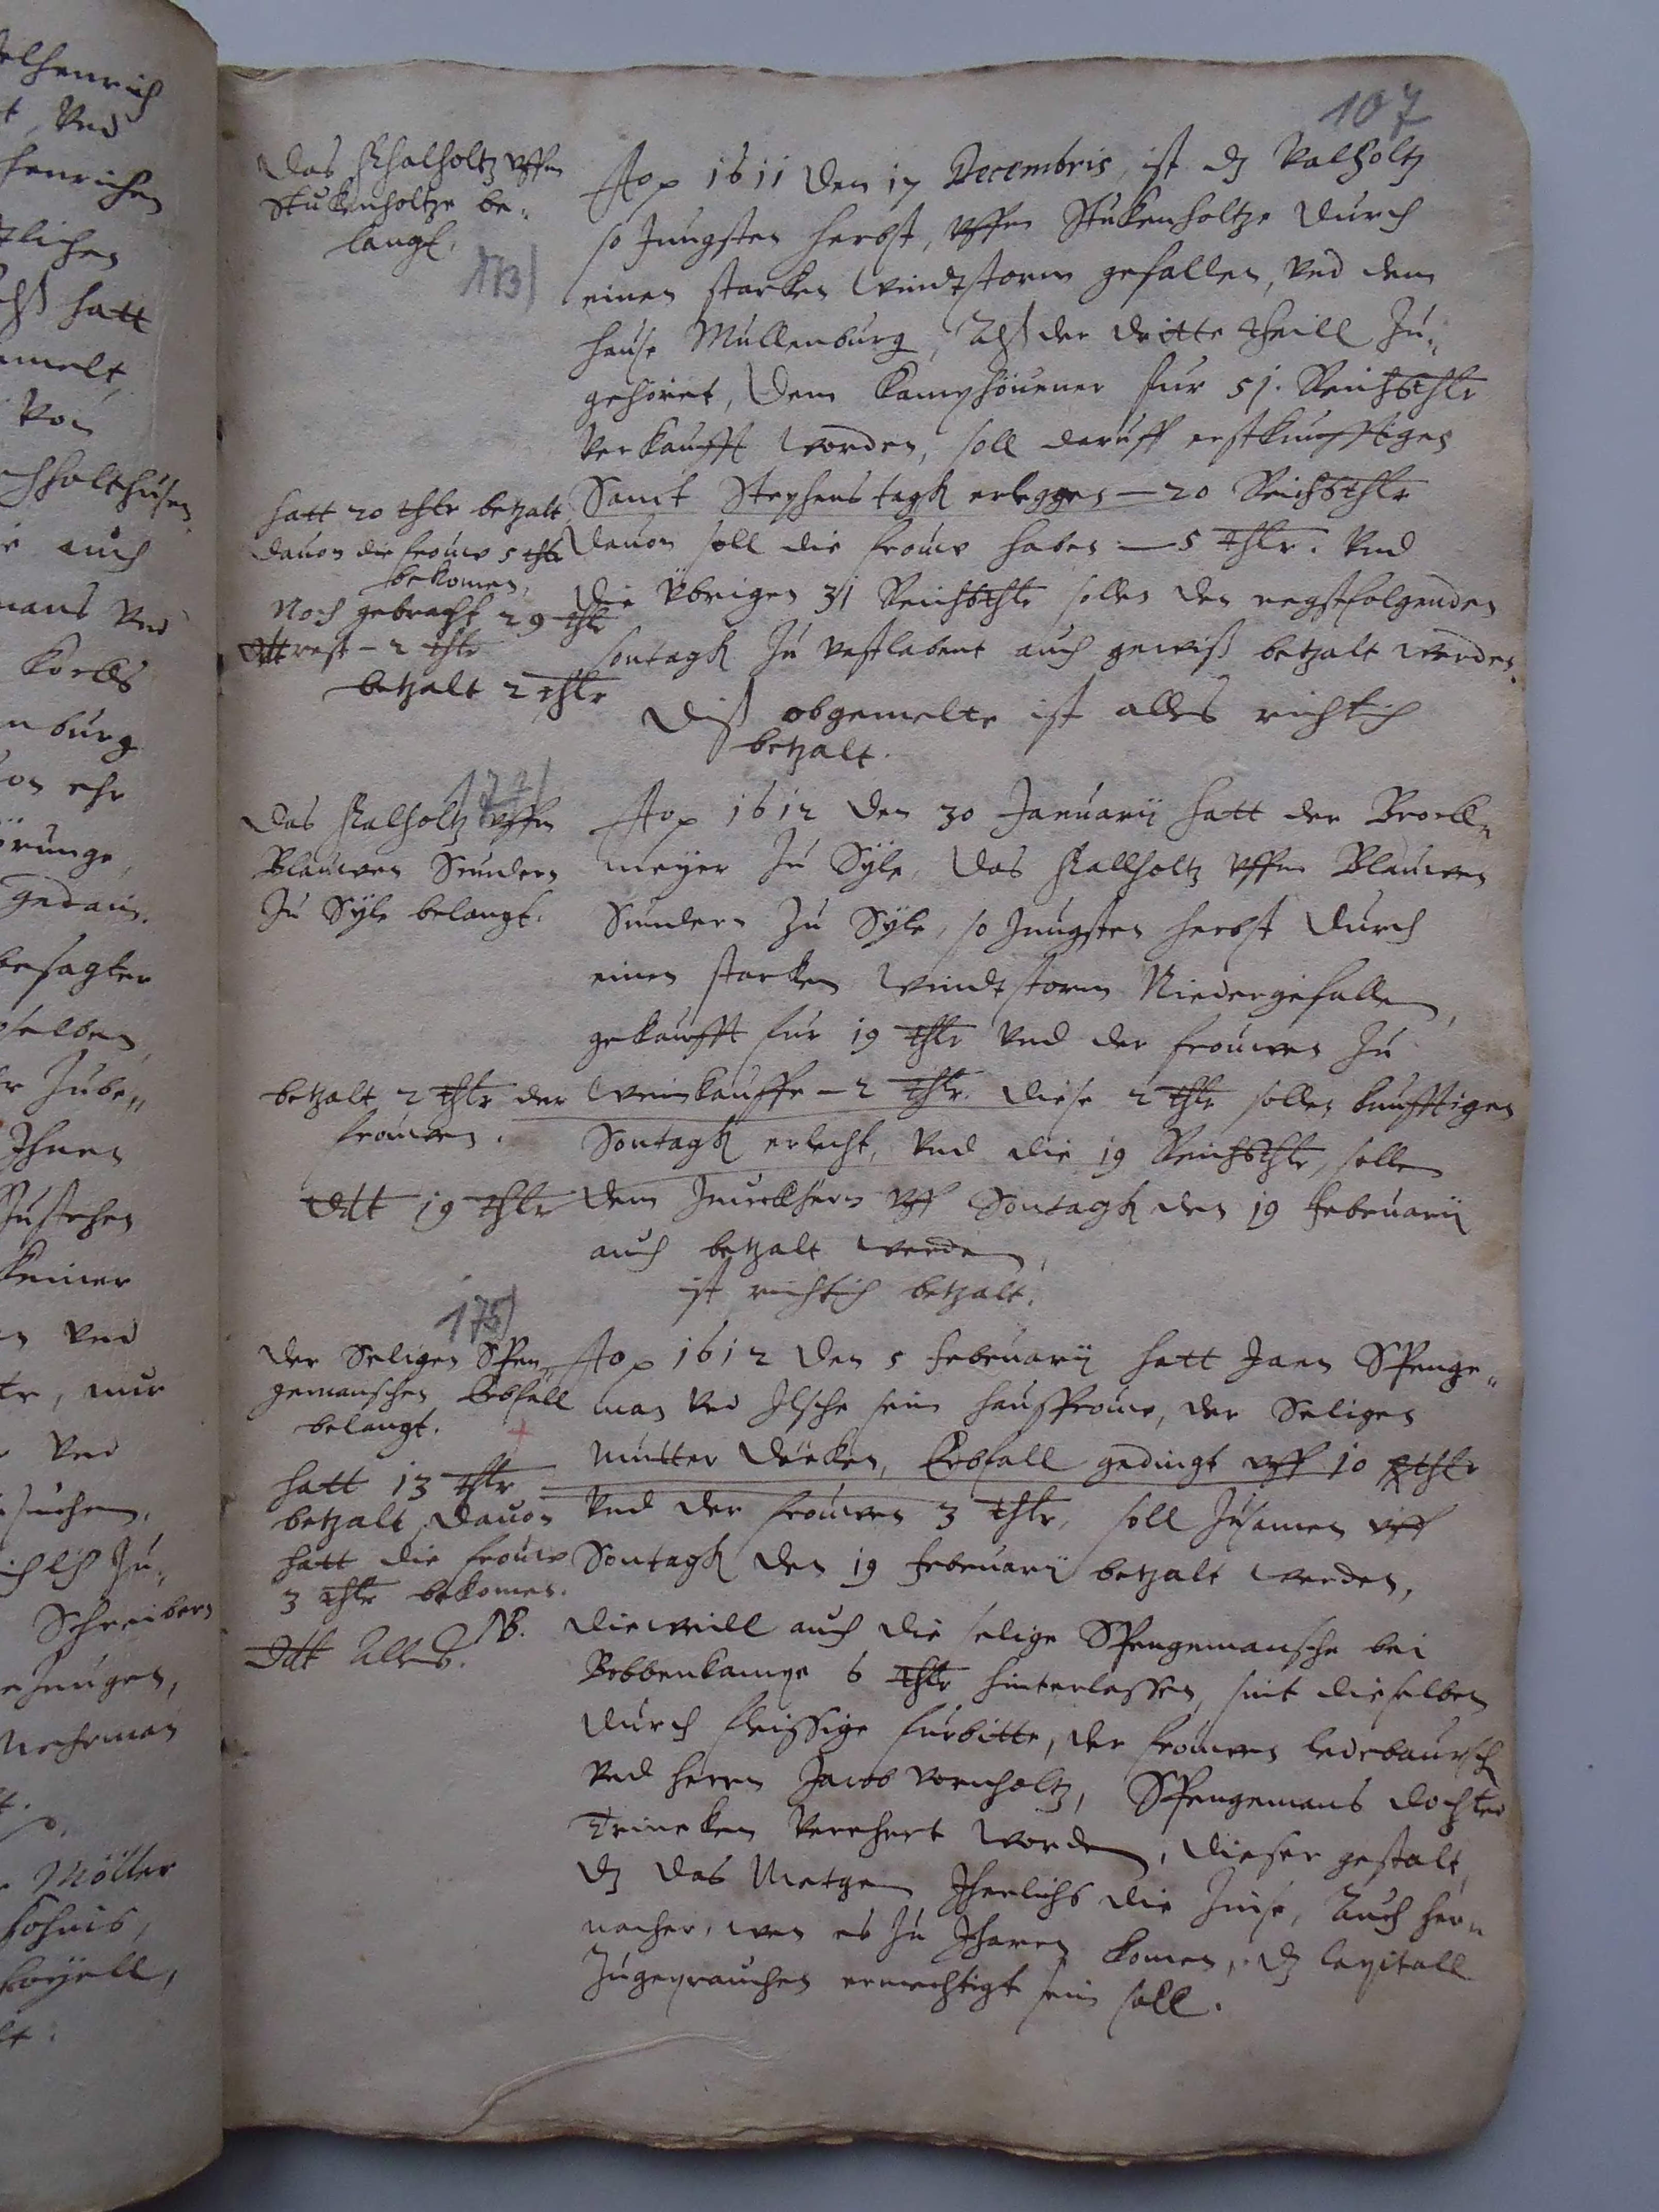 107
Das Fhalholtz vffm
Stukenholtze be„
langt.
173)
Ao 1611 den 17 Decembris, ist dz Valholtz
so Jungsten herbst, vffm Stukenholtze durch
einen starken windtstorm gefallen, vnd dem
hause Mullenburg, Alß der dritte theill Zu„
gehöret, dem Kamphöuener fur 51. Reichsthlr
verkaufft worden, soll daruff erstkunfftigen
Sanct Stephens tagk erleggen — 20 Reichsthlr
dauon soll die frouw haben — 5 thlr. vnd
die übrigen 31 Reichsthlr sollen den negstfolgenden
sontagk Zu vastlabent auch gewiß betzalt werden.
Diß obgemelte ist alles richtich
betzalt.
hatt 20 thlr betzalt
dauon die frouw 5 thlr
bekomen,
Noch gebracht 29 thlr
dtt rest – 2 thlr
betzalt 2 thlr
174)
Das Falholtz vffm
Blauwen Sundern
Zu Syle belangt.
Ao 1612 den 30 Januarii hatt der Broell„
meyer Zu Syle, das Fallholtz vffm Blauwen
Sundern Zu Syle, so Jungsten herbst durch
einen starken windtstorm Niedergefallen,
gekaufft fur 19 thlr vnd der frouwen Zu
weinkauffe – 2 thlr. diese 2 thlr sollen kunfftigen
Sontagk erlecht, vnd die 19 Reichsthlr, sollen
dem Junckhern vff Sontagk den 19 Februarii
auch betzalt werden,
ist richtich betzalt.
betzalt 2 thlr der
frouwen.
dtt 19 thlr
175)
Der Seligen Spen„
gemanschen Erbfall
belangt.
hatt 13 thlr
betzalt dauon
hatt die frouw
3 thlr bekomen.
dtt Alles.
NB.
Ao 1612 den 5 Februarii hatt Jaen Spenge„
man vnd Ilsche sein haußfrouw, der Seligen
Mutter Erbfall gedingt vff 10 thlr
vnd der frouwen 3 thlr, soll Zusamen vff
Sontagk den 19 Februarii betzalt werden,
diewill auch die selige Spengemansche bei
Bobbenkampe 6 thlr hinterlassen, sint dieselben
durch fleissige furbitte, der frouwen ledebaursch
vnd herrn Jacob vornholtz, Spengemans dochter
Trineken verehrt worden, dieser gestalt,
dz das Metgen Jherlichs die Zinse, Auch her„
nacher, wen es Zu Jharen komen, dz Capitall
Zugeprauchen ermechtigt sein soll.